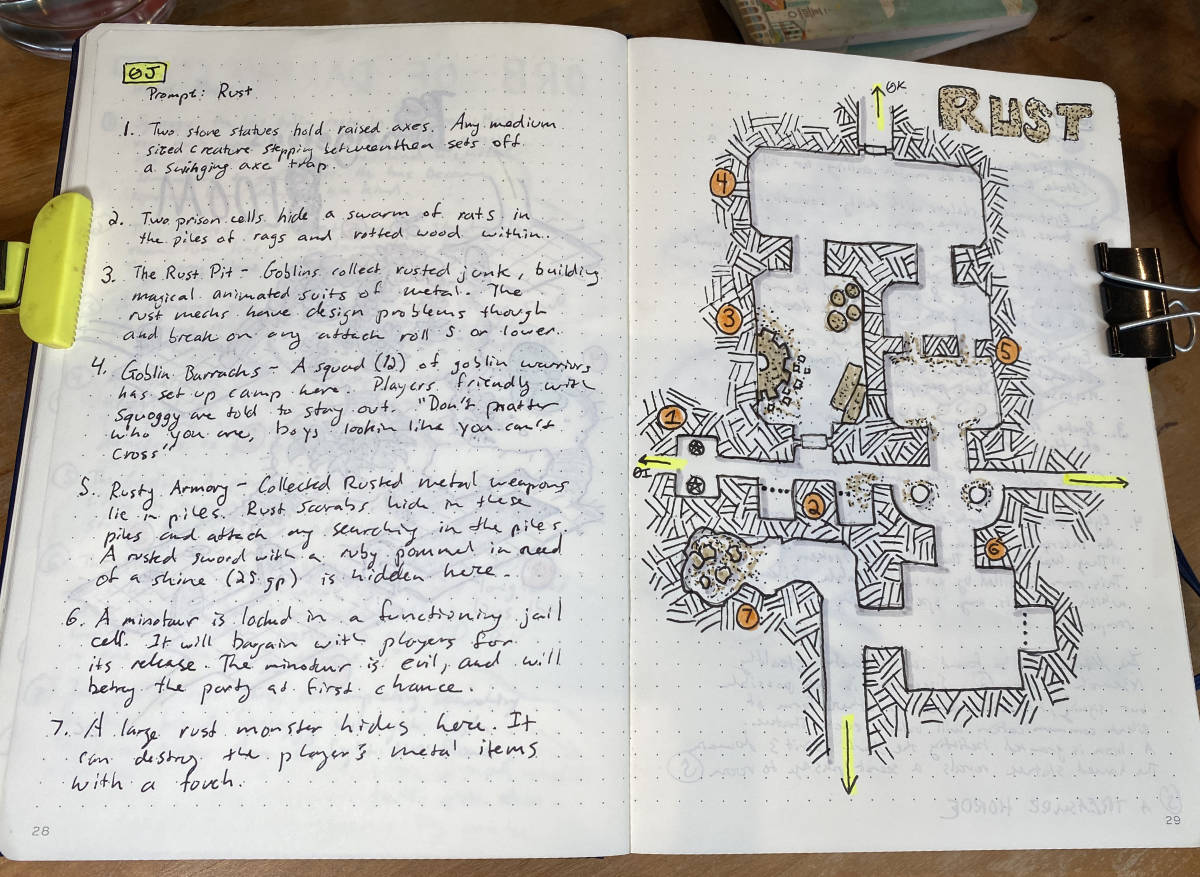 ØJ
Prompt: Rust
1. Two stone statues hold raised axes. Any medium
sized creature stepping between them sets off
a swinging axe trap.
2. Two prison cells hide a swarm of rats in
the piles of rags and rotted wood within.
3. The Rust Pit - Goblins collect rusted junk, building
magical animated suits of metal. The
rust mechs have design problems though
and break on any attack roll 5 or lower.
4. Goblin Barracks - A squad (12) of goblin warriors
has set up camp here. Players friendly with
Squoggy are told to stay out. "Don't matter
who you are, boys lookin like you can't
cross"
5. Rusty Armory - Collected Rusted metal weapons
lie in piles. Rust Scarabs hide in these
piles and attack any searching in the piles.
A rusted sword with a ruby pommel in need
of a shine (25 gp) is hidden here.
6. A minotaur is locked in a functioning jail
cell. It will bargain with players for
its release. The minotaur is evil, and will
betray the party at first chance.
7. A large rust monster hides here. It
can destroy the player's metal items
with a touch.
28
RUST
ØK
4
3
5
1
ØI
2
6
7
29